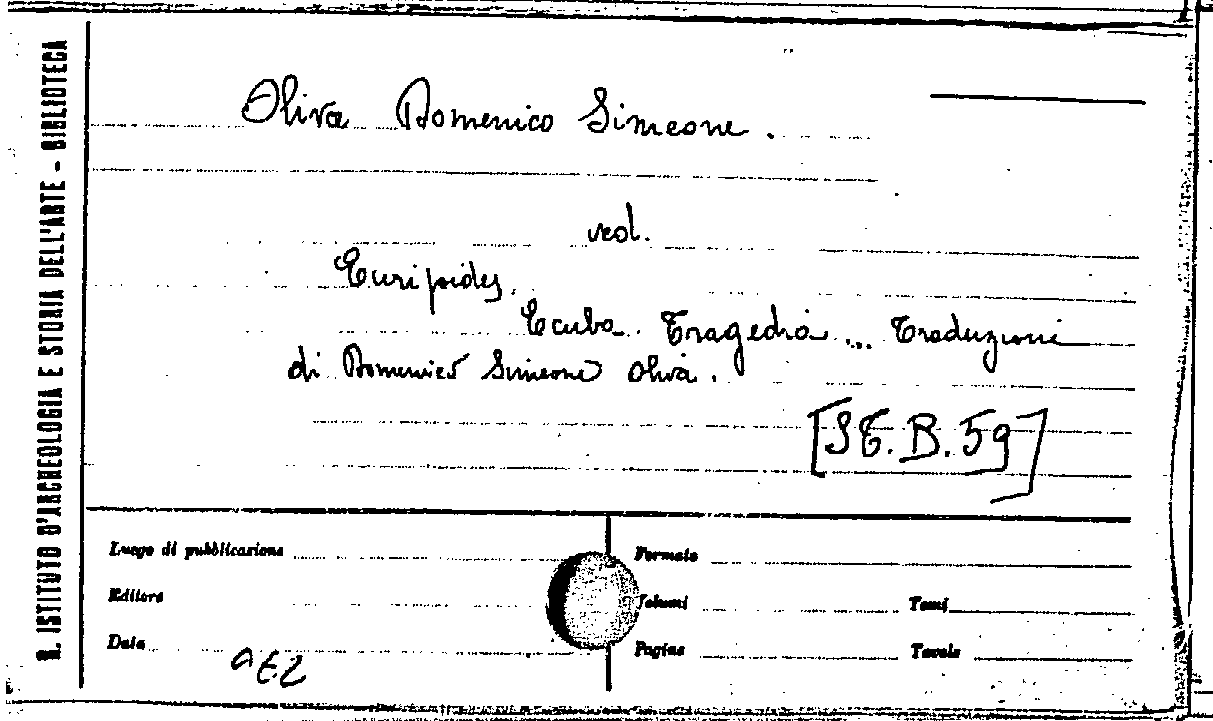 R. ISTITUTO D'ARCHEOLOGIA E STORIA DELL'ARTE - BIBLIOTECA
Oliva Domenico Simeone.
ved.
Euripides.
Ecuba. Tragedia ... Traduzioni
di Domenico Simeone Oliva.
[ST. B. 59]
Luogo di pubblicazione
Formato
Editore
Volumi
Tomi
Data
Pagine
Tavole